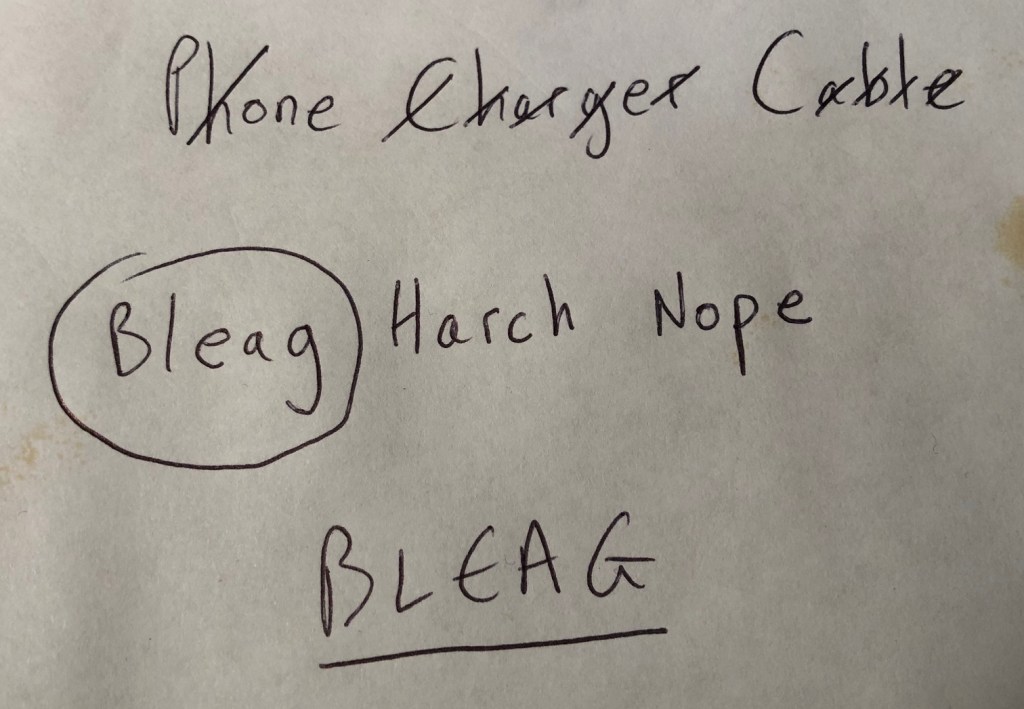 Phone Charger Cable
Bleag Harch Nope
BLEAG